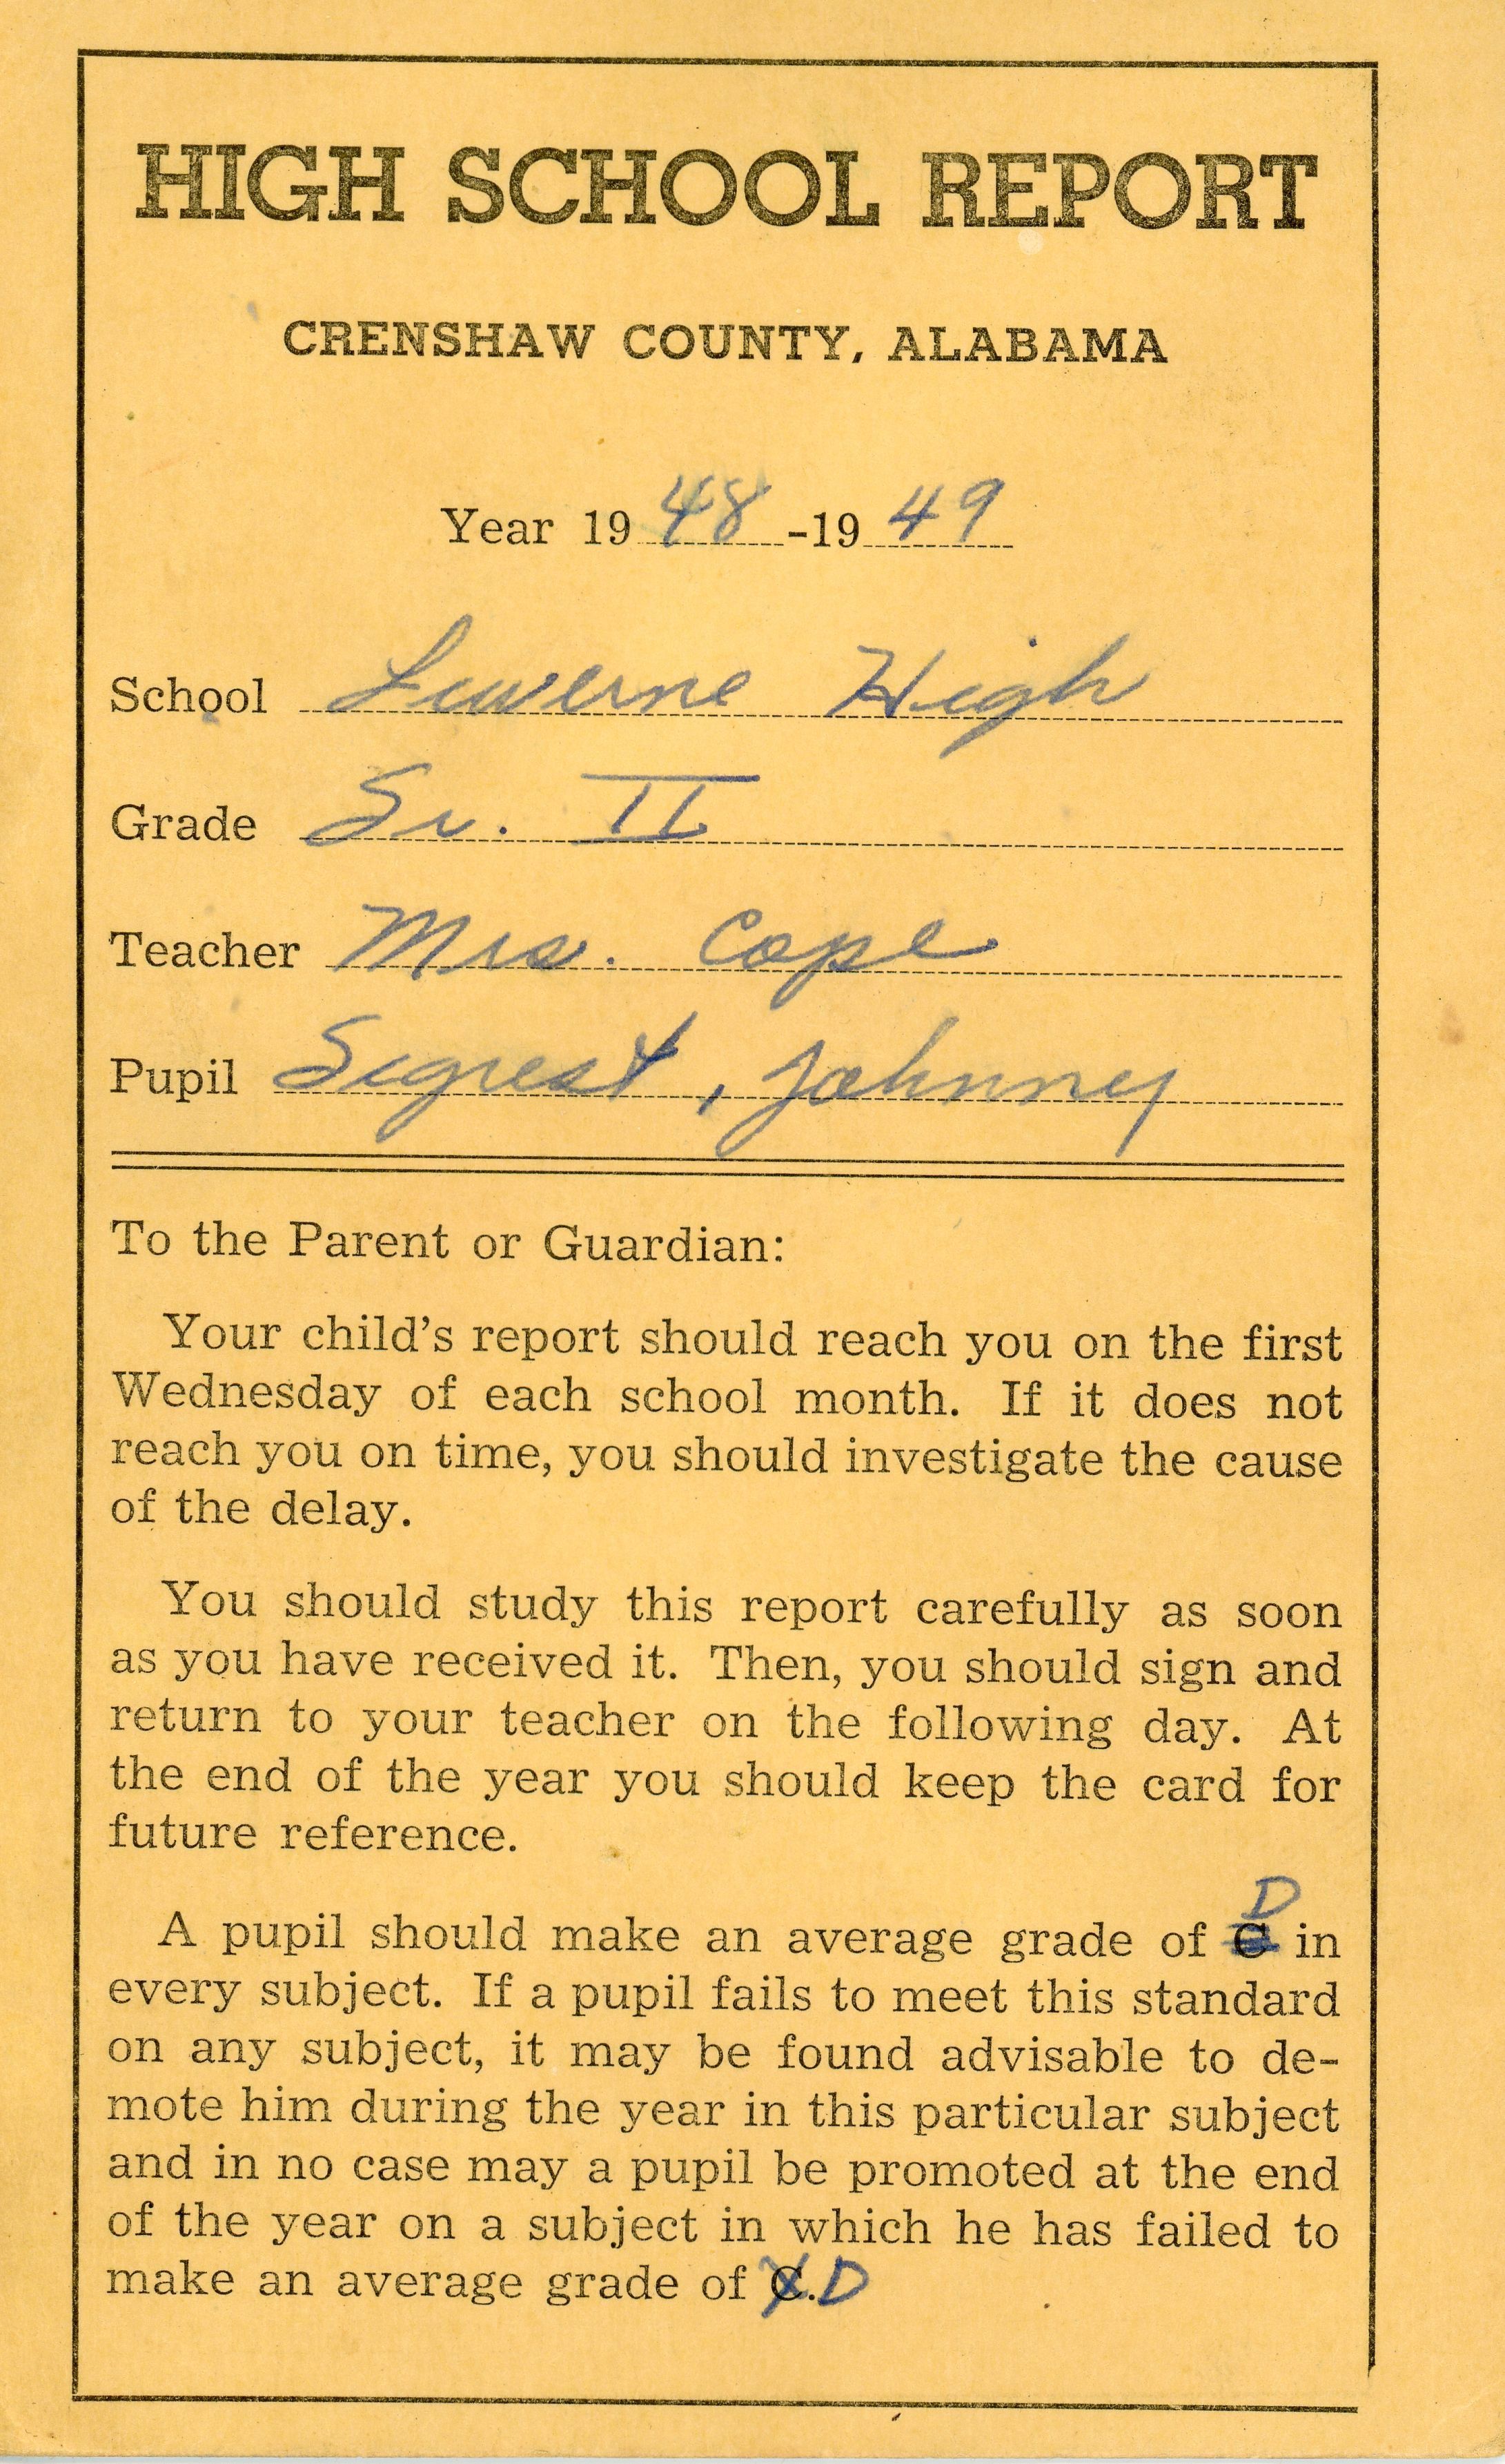 HIGH SCHOOL REPORT
CRENSHAW COUNTY, ALABAMA
Year 19 48 -19 49
School Luverne High
Grade Sr. II
Teacher Mrs. Cope
Pupil Sigrest, Johnny
To the Parent or Guardian:
Your child's report should reach you on the first
Wednesday of each school month. If it does not
reach you on time, you should investigate the cause
of the delay.
You should study this report carefully as soon
as you have received it. Then, you should sign and
return to your teacher on the following day. At
the end of the year you should keep the card for
future reference.
D
A pupil should make an average grade of C in
every subject. If a pupil fails to meet this standard
on any subject, it may be found advisable to de-
mote him during the year in this particular subject
and in no case may a pupil be promoted at the end
of the year on a subject in which he has failed to
make an average grade of C. D